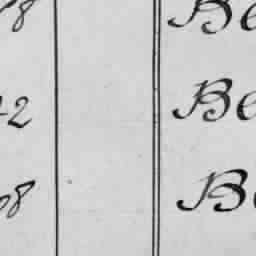 8 Be
2 Be
8 Be